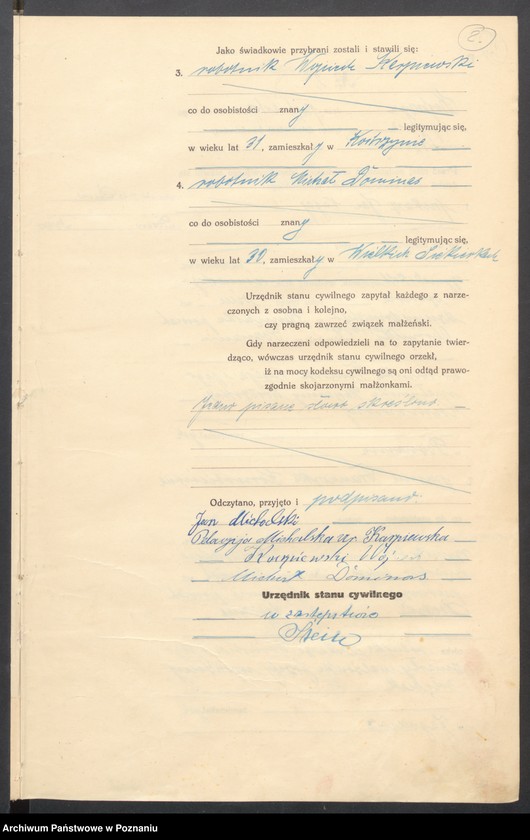 2.
Jako świadkowie przybrani zostali i stawili się:
3. robotnik Wojciech Karpiewski
co do osobistości znany
legitymując się,
w wieku lat 31, zamieszkały w Kostrzynie
4. robotnik Michał Dominas
co do osobistości znany
legitymując się,
w wieku lat 32, zamieszkały w Wielkich Siekierkach
Urzędnik stanu cywilnego zapytał każdego z narze-
czonych z osobna i kolejno,
czy pragną zawrzeć związek małżeński.
Gdy narzeczeni odpowiedzieli na to zapytanie twier-
dząco, wówczas urzędnik stanu cywilnego orzekł,
iż na mocy kodeksu cywilnego są oni odtąd prawo-
zgodnie skojarzonymi małżonkami.
pisane słowo skreślono
Odczytano, przyjęto i podpisano
Jan Michalski
Pelagja Michalska ur. Karpiewska
Karpiewski Woj
Michał Dominas
Urzędnik stanu cywilnego
w zastępstwie
Archiwum Państwowe w Poznaniu